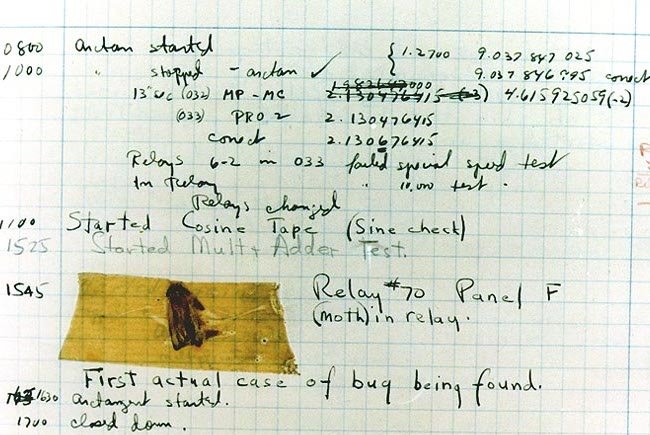 0800 arctan started { 1.2700 9.037 847 025
1000 " stopped - arctan ✓ 9.037 846 995 correct
13"sec (032) MP - MC 2.130476415 4.615925059(-2)
(033) PRO 2 2.130476415
correct 2.130676415
Relays 6-2 in 033 failed special speed test
In Relay " 10,000 test .
Relays changed
1100 Started Cosine Tape (Sine check)
1525 Started Mult + Adder Test.
1545 Relay #70 Panel F
(moth) in relay.
First actual case of bug being found.
1630 arctangent started.
1700 closed down.